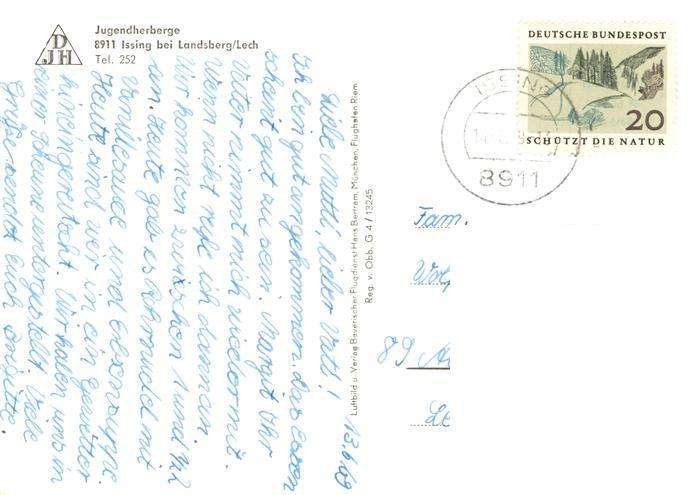 DJH
Jugendherberge
8911 Issing bei Landsberg/Lech
Tel. 252
DEUTSCHE BUNDESPOST
20
SCHÜTZT DIE NATUR
ISSING
8911
13.6.69
Liebe Mutti, lieber Vati!
Ich bin gut angekommen. Das Essen
scheint gut zu sein. Margits
Vater nimmt mich wieder mit.
Wenn nicht rufe ich dann an.
Wir kommen zwischen 1 und 1/2
an. Heute gab es mit
und Erbsensuppe.
Heute sind wir in ein Gewitter
hineingeraten. Wir haben uns in
einer untergestellt. Viele
Grüße sendet Euch Brigitte
Luftbild u. Verlag Bayerischer Flugdienst Hans Bertram, München, Flughafen Riem
Reg. v. Obb. G 4/13245
Fam.
89